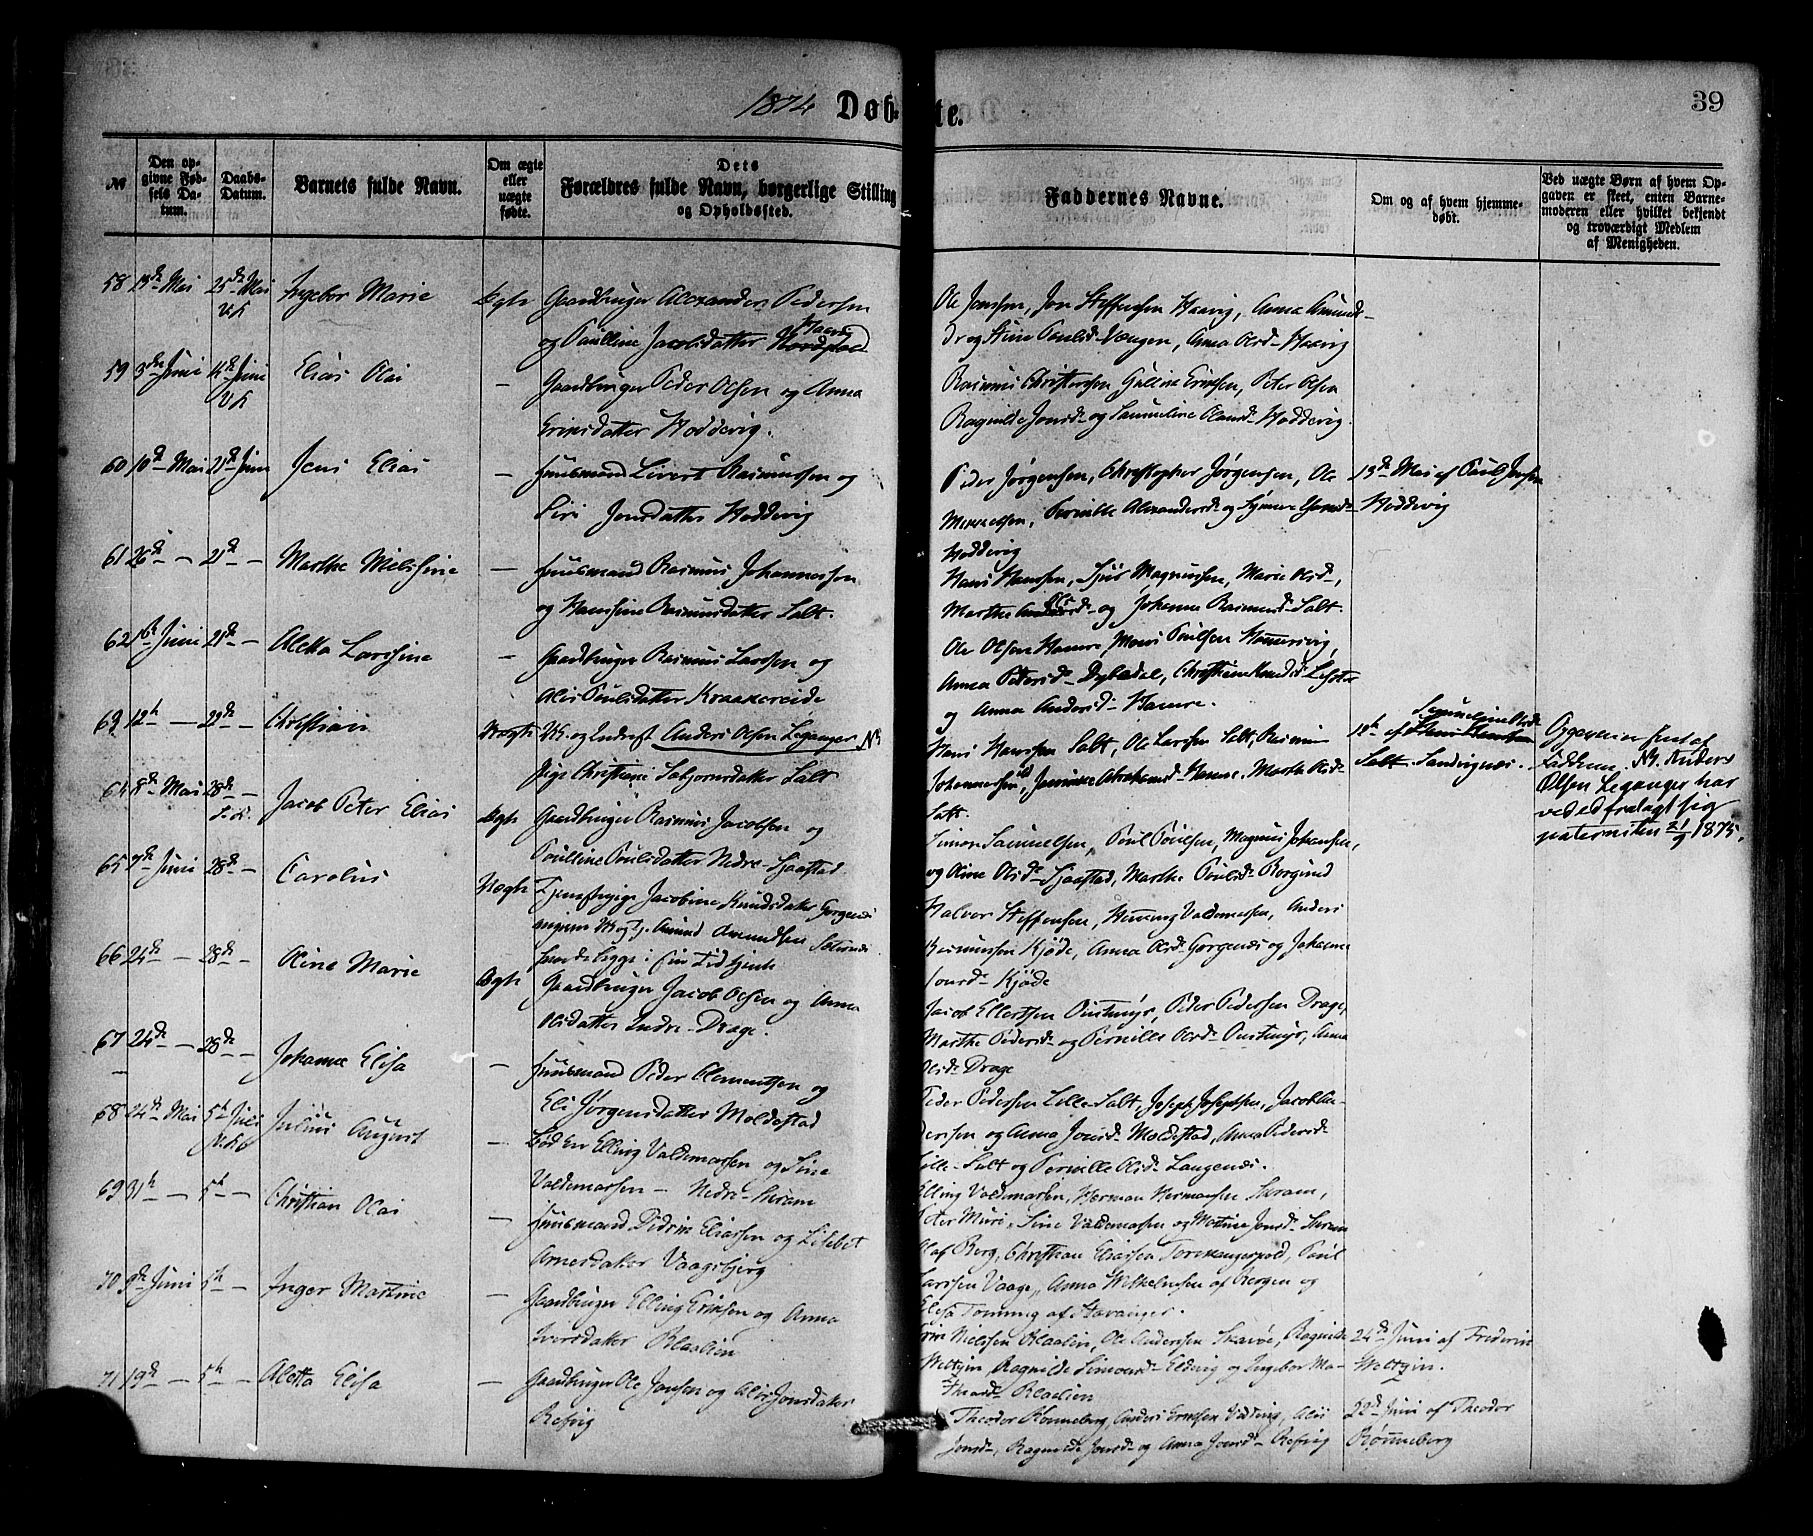 1874 Døb-te. 39
№
Den op-
givne Fød-
sels Da-
tum.
Daabs-
Datum.
Barnets fulde Navn.
Om ægte
eller
uægte
fødte.
Dets
Forældres fulde Navn, borgerlige Stilling
og Opholdssted.
Faddernes Navne.
Om og af hvem hjemme-
døbt.
Ved uægte Børn af hvem Op-
gaven er skeet, enten Barne-
moderen eller hvilket bekjendt
og troværdigt Medlem
af Menigheden.
58 Mai 25de Mai Ingebor Marie Ægte Gaardbruger Alexander Pedersen
og Paulline Jacobsdatter
Ole Jonssen, Jon Steffensen Haavig, Anna Amund-
dr og Stine Poulsd Vengen, Anna Olsd Haavig
59 3de Juni 14de Juni Elias Olai — Gaardbruger Peder Olsen og Anna
VK
Eriksdatter Hoddevig.
Rasmus Christenssen, Gulline Eriksen, Peter Olsen
Ragnilde Jonsd og Samueline Olausd Hoddevig.
60 10de Mai 21de Juni Jens Elias — Huusmand Sivert Rasmussen og
Siri Jonsdatter Hoddevig
Peder Jørgensen, Christopher Jørgensen, Ole
Mikkelsen, Pernille Alexandersd og
Hoddevig
13de Mai af Poul Jonsen
Hoddevig
61 26de — 21de — Marthe Melisine — Huusmand Rasmus Johannessen
og Hansine Rasmusdatter Salt.
Hans Hanssen, Sjur Magnussen, Marie Olsd,
Marthe og Johanne Rasmusd Salt.
62 Juni 21de — Aletta Larssine — Gaardbruger Rasmus Larssen og
Alis Poulsdatter Kraakereide
Ole Olsen Hamre, Mons Poulsen Hammersvig,
Anna Petersd Dybedal,
og Anna Andersd Hamre.
63 12te — Christian Uægte Uk. og Inderst Anders Olsen Leganger № 1
Pige Christiane Salt
Hans Hanssen Salt, Ole Larssen Salt, Rasmus
Johannessen, Hamre, Marthe Olsd
Salt.
18de af
Salt Sandvignæs.
Opgaven er skeet af
Fadderne. № Anders
Olsen Leganger har
ved ed fralagt sig
paterniteten 21/9 1875.
64 8de Mai 28de — Jacob Peter Elias Ægte Gaardbruger Rasmus Jacobsen og
Poulline Poulsdatter Nedre-Sjaastad.
Simon Samuelsen, Poul Poulsen, Magnus Johansen,
og Oline Olsd Sjaastad, Marthe Poulsd Borgund
65 7de Juni 28de — Carolus Uægte Tjenestepige Jacobine Knudsdatter Gorgenæs
Amund Amundsen
Halvor Steffensen, Henning Valdemarsen, Anders
Rasmussen Kjøde, Anna Olsd Gorgenæs og Johanne
Jonsd Kjøde
66 24de — 28de — Oline Marie Ægte Gaardbruger Jacob Olsen og Anna
Olsdatter Indre-Drage.
Jacob Ellertsen Oustmyr, Peder Pedersen Drage,
Marthe Pedersd og Pernille Olsd Oustmyr, Anna
Olsd Drage
67 24de — 28de — Johanne Elisa — Huusmand Peder Clementsen og
Eli Jørgensdatter Moldestad
Peder Pedersen Lille-Salt, Joseph Josephsen, Jacob An-
derssen og Anna Jonsd Moldestad, Anna Pedersd
Lille-Salt og Pernille Olsd Langenæs.
68 24de Mai 5te Juli Julius August — Bødker Elling Valdemarsen og Sine
Valdemarsen — Nedre-Huram
Elling Valdemarsen, Herman Hermansen Huram,
Peter Muri, Sine Valdemarsen og Martine Jonsd Huram
69 31te — 5te — Christian Olai — Huusmand Pedrik Eliassen og Lisebet
Arnesdatter Vaagsbjerg
Olaf Berg, Christian Eliassen Torskangerpod, Poul
Larssen Vaage, Anna Wilhelmsen af Bergen og
Elisa Tomming af Stavanger.
70 Juni 5te — Inger Martine — Gaardbruger Elling Eriksen og Anna
Iversdatter Blaalien
Nielsen Blaalien, Ole Anderssen Skavøe, Ragnilde
Weltzin, Ragnilde Simonsd Eldevig og Ingebor Ma-
theasd Blaalien
24de Juni af Frederik
Weltzin.
71 19de — 5te — Aletta Elisa — Gaardbruger Ole Jonsen og Alis Jonsdatter
Refvig
Theodor Rønneberg, Anders Eriksen, Alis
Jonsd, Ragnilde Jonsd og Anna Jonsd Refvig
22de Juni af Theodor
Rønneberg